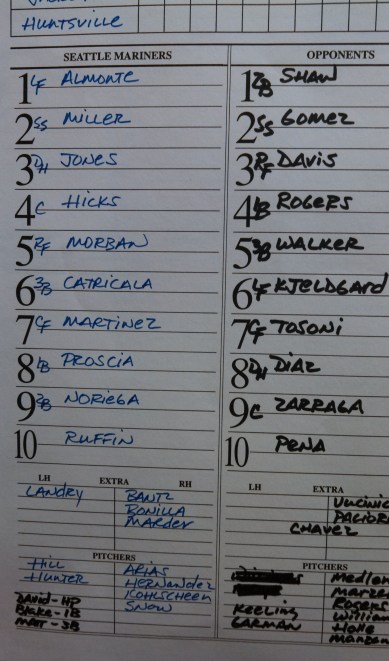 HUNTSVILLE
SEATTLE MARINERS
1 LF ALMONTE
2 SS MILLER
3 DH JONES
4 C HICKS
5 RF MORBAN
6 3B CATRICALA
7 CF MARTINEZ
8 1B PROSCIA
9 2B NORIEGA
10 RUFFIN
LH EXTRA RH
LANDRY BANTZ
BONILLA
MARDER
PITCHERS
HILL ARIAS
HUNTER HERNANDEZ
KOHLSCHEEN
DAVID-HP SNOW
Blake-1B
MATT-3B
OPPONENTS
1 2B SHAW
2 SS GOMEZ
3 RF DAVIS
4 1B ROGERS
5 3B WALKER
6 LF KJELDGARD
7 CF TOSONI
8 DH DIAZ
9 C ZARRAGA
10 PENA
LH EXTRA
VUCINIC
CHAVEZ
PITCHERS
KEELING
GARMAN